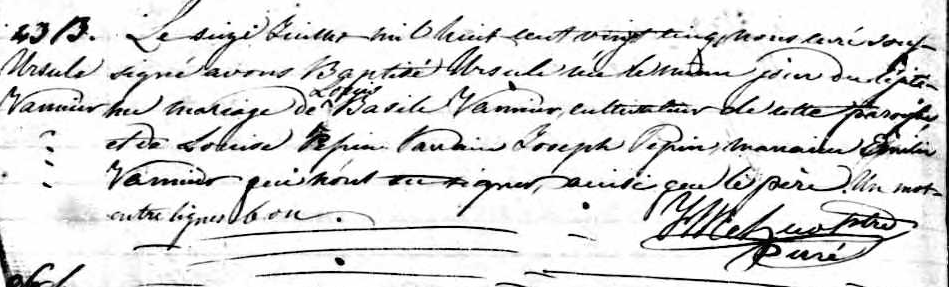 23 B. Le seize Juillet mil huit cent vingt cinq, nous curé sous-
Ursule signé avons Baptisé Ursule née le même jour du légiti-
Vannier me mariage de Louis Basile Vannier, cultivateur de cette paroisse
et de Louise Pepin Parrain Joseph Pepin, marraine Emilie
Vannier qui n'ont su signer, ainsi que le père. Un mot
entre lignes bon.
Ptre
Curé